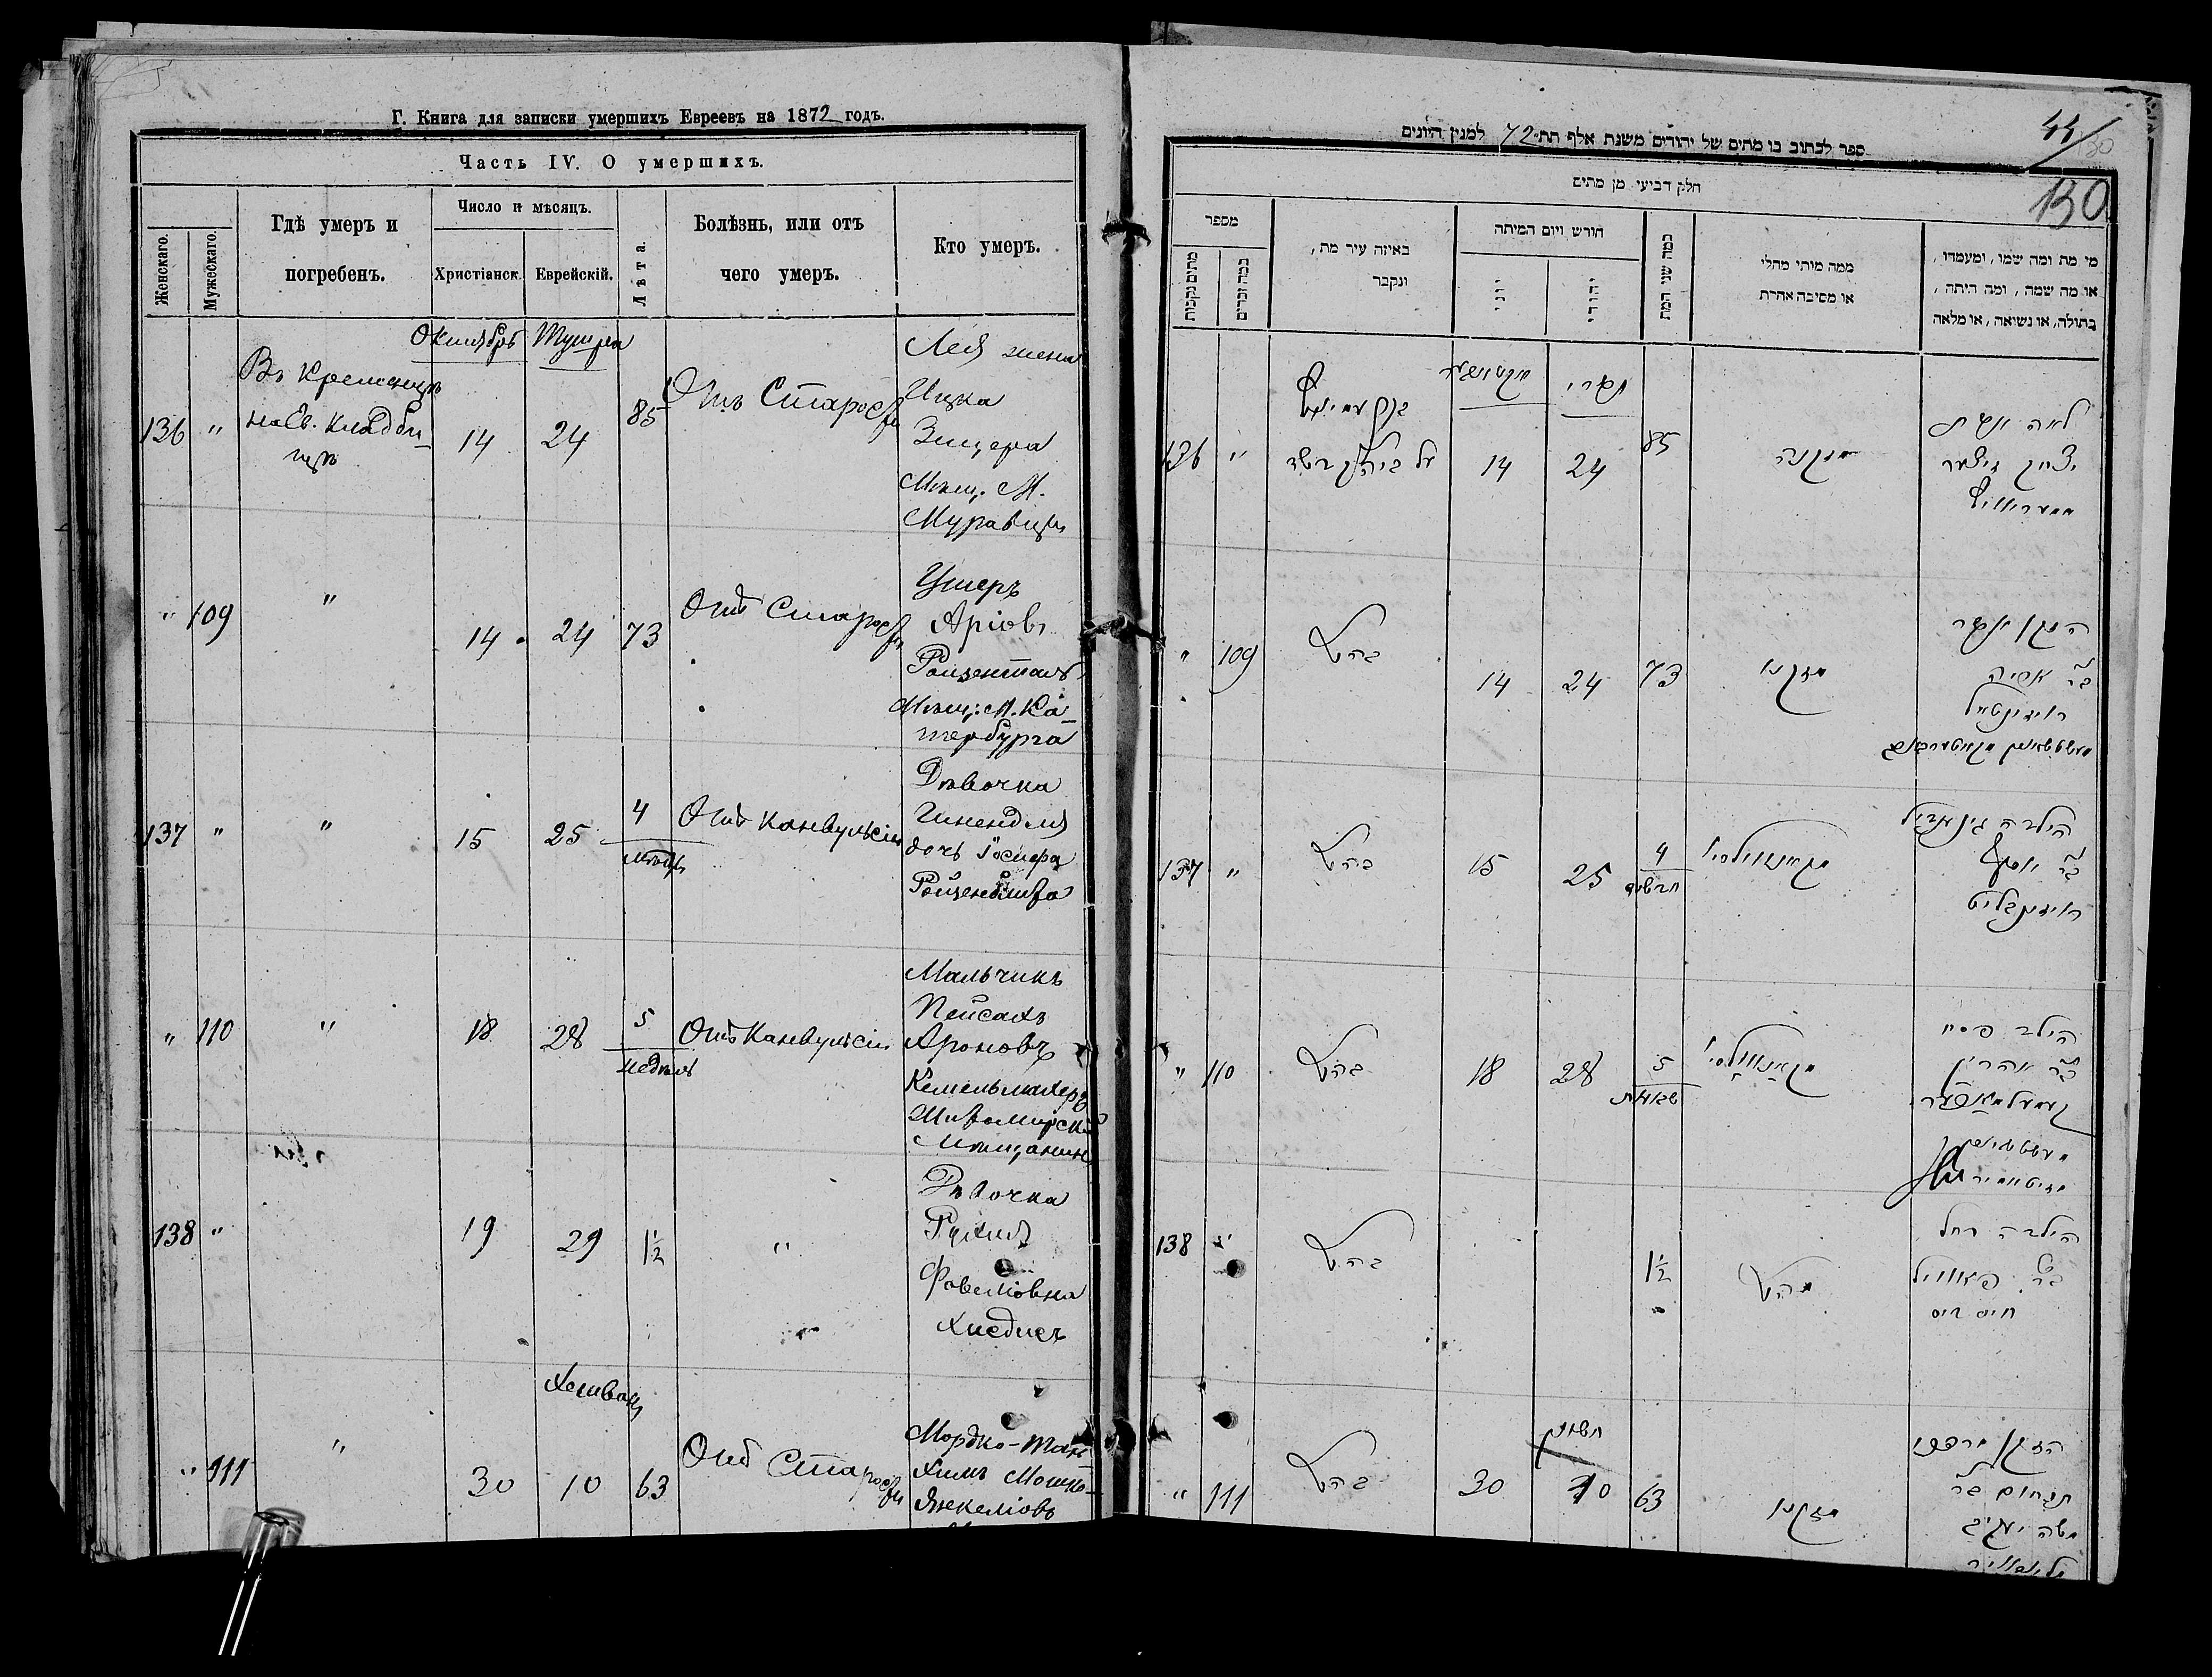 Г. Книга для записки умершихъ Евреевъ на 1872 годъ.
Часть IV. О умершихъ.
Женскаго.
Мужескаго.
Гдѣ умеръ и
погребенъ.
Число и мѣсяцъ.
Христіанск.
Еврейскій.
Лѣта.
Болѣзнь, или отъ
чего умеръ.
Кто умеръ.
Октябрь Тушрея
136 "
Въ Кременцѣ
на Ев. Кладби-
щѣ
14 24 85
Отъ Старости
Лея жена
Ицка
Зицера
Мѣщ. М.
Муравицы
" 109 " 14 24 73
Отъ Старости
Ушеръ
Аріовъ
Роизенталь
Мѣщ: М. Ка-
тербурга
137 " " 15 25 4
мѣсяц
Отъ Канвульсіи
Дѣвочка
Гинендля
дочь Іосифа
Роизенблита
" 110 " 18 28 5
недѣль
Отъ Канвульсіи
Мальчикъ
Пейсахъ
Ароновъ
Кемельмахеръ
Житомирскій
Мѣщанинъ
138 " 19 29 1½ "
Дѣвочка
Рухля
Фавелювна
Хиедисъ
Хешвань
" 111 " 30 10 63
Отъ Старости
Мордко-Тан-
химъ Мошко-
Янкеліовъ
44/
30
130
ספר לכתוב בו מתים של יהודים משנת אלף תת״72 למנין היונים
חלק רביעי מן מתים
מספר
מתים נקבות
כמה זכרים
באיזה עיר מת,
ונקבר
חורש ויום המיתה
יוני
יהודי
כמה שני המת
ממה מותי מחלי
או מסיבה אחרת
מי מת ומה שמו, ומעמדו,
או מה שמה, ומה היתה,
בתולה, או נשואה, או מלאה
תשרי
136 "
14 24 85
מזקנה
לאה אשת
יצחק זיצער
" 109
14 24 73
מזקנו
הזקן אשר
רויזינטאל
137 "
15 25 4
חדשים
הילדה גינענדיל
בר יוסף
רויזינבליט
" 110
18 28 5
שבועות
הילד פסח
בר אהרן
138 "
1½
הילדה רחל
חשון
" 111
30 10 63
מזקנו
הזקן מרדכי
תנחום בר
משה יעקב